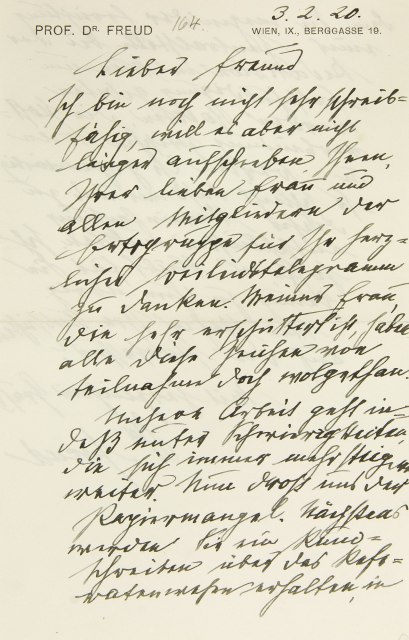 PROF. DR. FREUD
164.
3. 2. 20.
WIEN, IX., BERGGASSE 19.
Lieber Freund
Ich bin noch nicht sehr schreib-
fähig, will es aber nicht
länger aufschieben Ihnen,
Ihrer lieben Frau und
allen Mitgliedern der
Ortsgruppe für Ihr herz-
liches Beileidstelegramm
zu danken. Meiner Frau,
die sehr erschüttert ist, haben
alle diese Zeichen von
Teilnahme doch wolgethan.
Unsere Arbeit geht in-
deß unter Schwierigkeiten
die sich immer mehr steigern
weiter. Nun droht uns der
Papiermangel. Nächstens
werden Sie ein Rund-
schreiben über das Refe-
ratenwesen erhalten, in